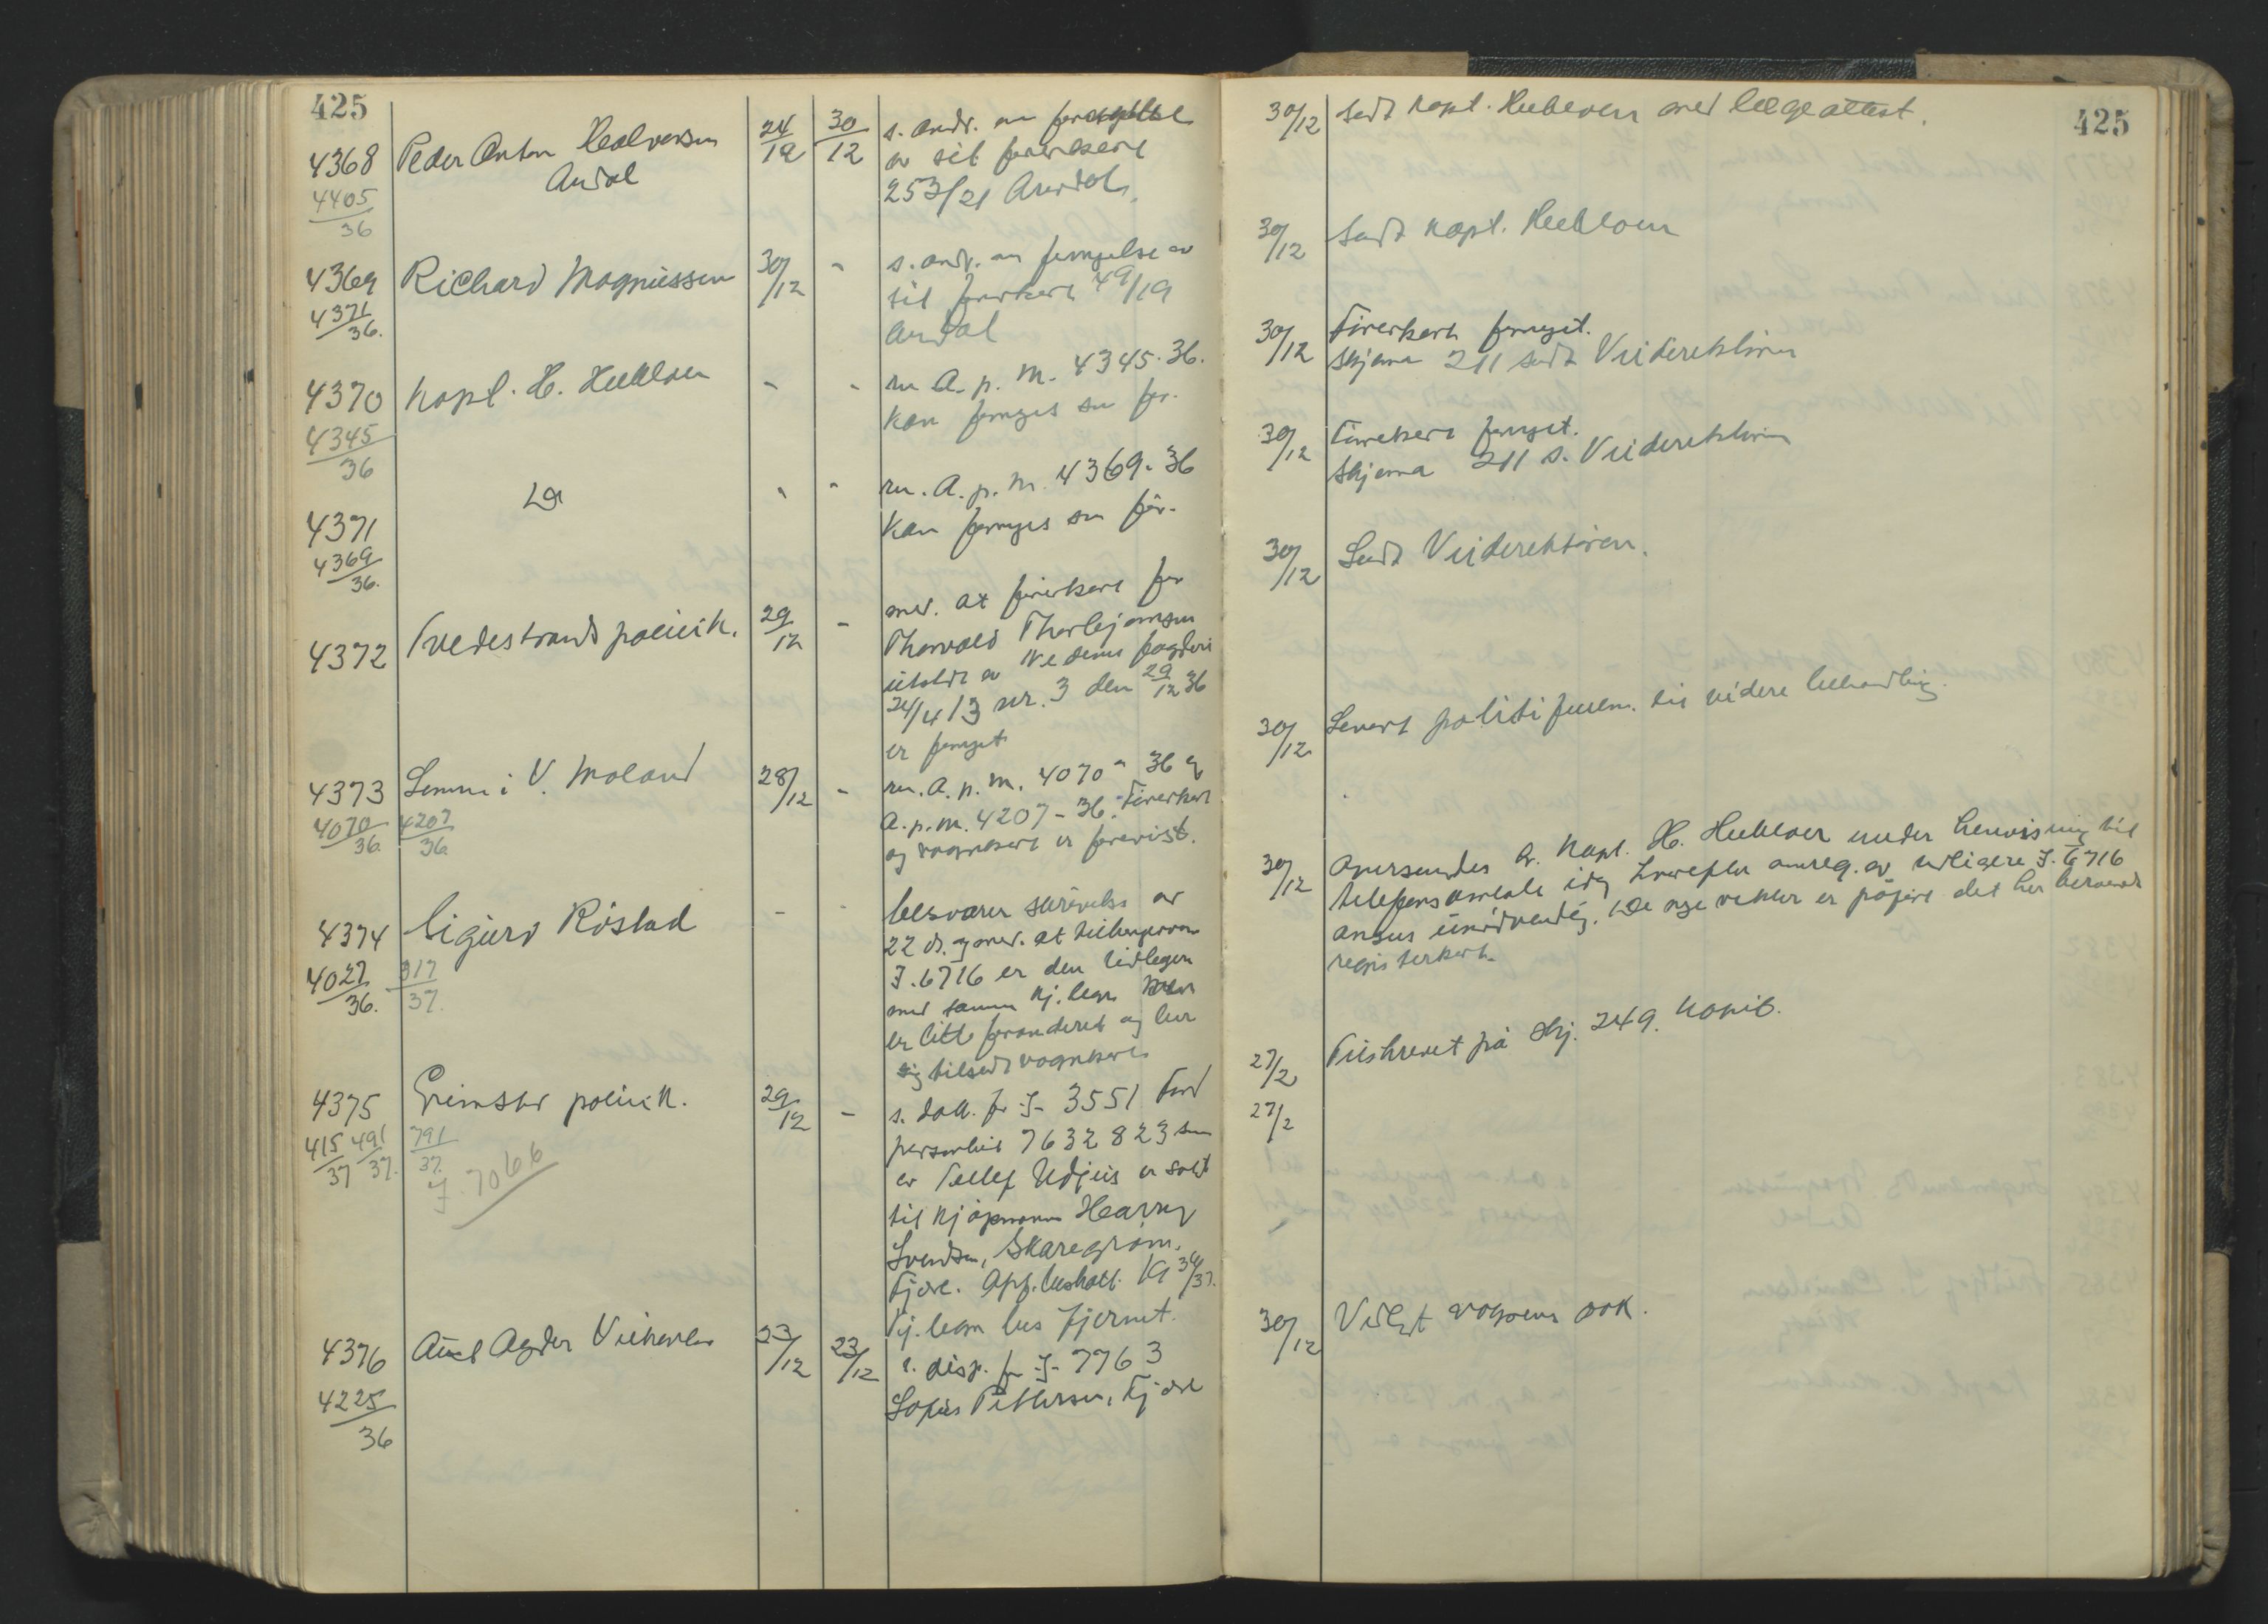 425
4368 Peder Anton Halvorsen 24/12 30/12 s. andr. om fornyelse
Arendal av sit førerkort
4405/36 253/21 Arendal.
4369 Richard Magnussen 30/12 - s. andr. om fornyelse av
4371/36. sit førerkort 49/19
Arendal
4370 Kapt. H. - - A. p. m. 4345-36.
4345/36 Kan fornyes som før.
4371 Do - - A. p. m. 4369-36
4369/36. Kan fornyes som før.
4372 Tvedestrand politik. 29/12 - med. at førerkort for
Thorvald Thorbjørnsen
utstedt av Nedenes fogderi
24/4 13 nr. 3 den 29/12 36
er fornyet
4373 Lensm. i V. Moland 28/12 - A. p. m. 4070-36 og
4070/36. 4207/36. A. p. m. 4207-36. Førerkort
og vognkort er forevist.
4374 Sigurd Røstad - - besvarer skrivelse av
4027/36. 317/37. 22 ds. og med. at tilhengervogn
I.6716 er den tidligere
med samme kj.tegn
er litt forandret og ber
sig tilsendt vognkort
4375 Grimstad politik. 29/12 - s. dok. for I-3551 Ford
415/37 491/37. 791/37. personbil 7632823 som
I. 7066 av Tellef Udjus er solgt
til kjøpmann Harry
Svendsen, Skaregrøm,
Fjære.
Kj.tegn bes fjernet.
4376 Aust Agder Veikontor 23/12 23/12 s. disp. for I-7763
4225/36 Sofus Pettersen, Fjære
425
30/12 Sendt kapt. med lægeattest.
30/12 Sendt kapt.
30/12 Førerkort fornyet.
Skjema 211 sendt Veidirektøren
30/12 Førerkort fornyet.
Skjema 211 s. Veidirektøren
30/12 Sendt Veidirektøren.
30/12 Levert politifullm. til videre behandling.
30/12 Oversendes Hr. Kapt. H. under henvisning til
telefonsamtale idag hvorefter omreg. av tidligere I-6716
anses unødvendig. De nye vekter er påført det her beroende
registerkort.
27/2 Tilskrevet på skj. 249. Kopi 6.
27/2
30/12 Vedlagt vognens dok.